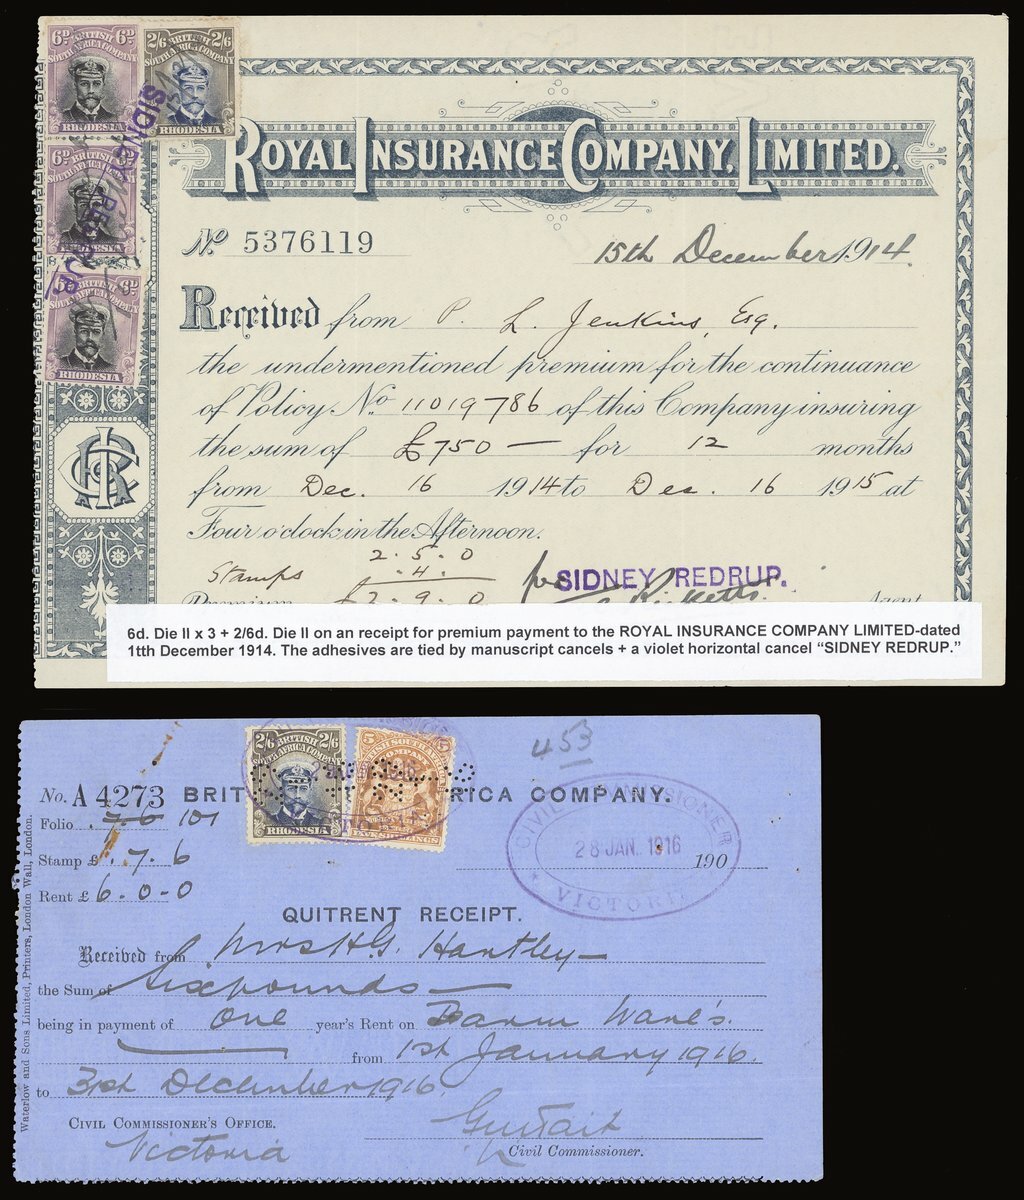 6D. 6D.
BRITISH
SOUTH AFRICA COMPANY
RHODESIA
2/6 BRITISH 2/6
SOUTH AFRICA COMPANY
RHODESIA
6D. BRITISH 6D.
SOUTH AFRICA COMPANY
RHODESIA
6D. BRITISH 6D.
SOUTH AFRICA COMPANY
RHODESIA
SIDNEY REDRUP.
ROYAL INSURANCE COMPANY, LIMITED.
No 5376119
15th December 1914.
Received from P. L. Jenkins, Esq.
the undermentioned premium for the continuance
of Policy No 11019786 of this Company insuring
the sum of £750 — for 12 months
from Dec. 16 1914 to Dec. 16 1915 at
Four o'clock in the Afternoon.
2.5.0
Stamps .4.
Premium £2.9.0
per SIDNEY REDRUP.
Ricketts. Agent
6d. Die II x 3 + 2/6d. Die II on an receipt for premium payment to the ROYAL INSURANCE COMPANY LIMITED-dated
1tth December 1914. The adhesives are tied by manuscript cancels + a violet horizontal cancel “SIDNEY REDRUP.”
2/6 BRITISH 2/6
SOUTH AFRICA COMPANY
RHODESIA
BRITISH SOUTH AFRICA
COMPANY
FIVE SHILLINGS
453
No. A 4273 BRIT RICA COMPANY.
Folio 7-6 101
Stamp £ .7.6
Rent £ 6-0-0
CIVIL COMMISSIONER
28 JAN. 1916
VICTORIA
190
QUITRENT RECEIPT.
Received from Mrs H.G. Hantley —
the Sum of Six pounds —
being in payment of One year's Rent on Farm Ware's.
from 1st January 1916.
to 31st December 1916.
CIVIL COMMISSIONER'S OFFICE.
Victoria
Civil Commissioner.
Waterlow and Sons Limited, Printers, London Wall, London.